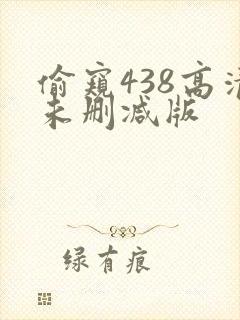 偷窥438高清
未删减版
绿有痕